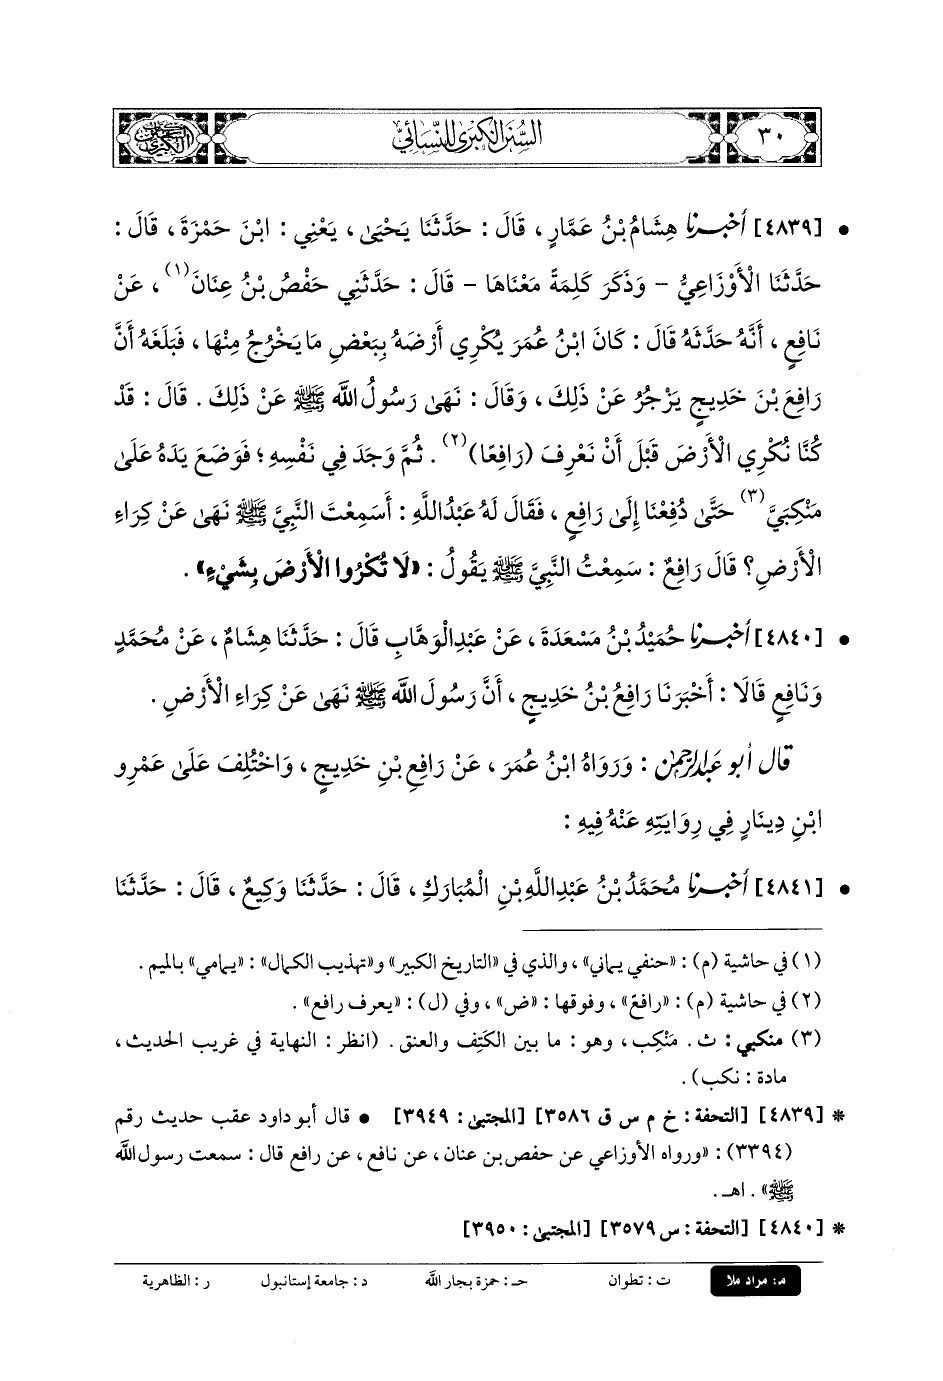 ٣٠
السنن الكبرى للنسائي
• [٤٨٣٩] أخبرنا هِشَامُ بْنُ عَمَّارٍ ، قَالَ : حَدَّثَنَا يَحْيَىٰ ، يَعْنِي : ابْنَ حَمْزَةَ ، قَالَ :
حَدَّثَنَا الْأَوْزَاعِيُّ - وَذَكَرَ كَلِمَةً مَعْنَاهَا - قَالَ : حَدَّثَنِي حَفْصُ بْنُ عِنَانَ(١) ، عَنْ
نَافِعٍ ، أَنَّهُ حَدَّثَهُ قَالَ : كَانَ ابْنُ عُمَرَ يُكْرِي أَرْضَهُ بِبَعْضِ مَا يَخْرُجُ مِنْهَا ، فَبَلَغَهُ أَنَّ
رَافِعَ بْنَ خَدِيجٍ يَزْجُرُ عَنْ ذَلِكَ ، وَقَالَ : نَهَىٰ رَسُولُ اللَّه ﷺ عَنْ ذَلِكَ . قَالَ : قَدْ
كُنَّا نُكْرِي الْأَرْضَ قَبْلَ أَنْ نَعْرِفَ (رَافِعًا)(٢) . ثُمَّ وَجَدَ فِي نَفْسِهِ ؛ فَوَضَعَ يَدَهُ عَلَىٰ
مَنْكِبَيَّ(٣) حَتَّىٰ دُفْعْنَا إِلَىٰ رَافِعٍ ، فَقَالَ لَهُ عَبْدُ اللَّهِ : أَسَمِعْتَ النَّبِيَّ ﷺ نَهَىٰ عَنْ كِرَاءِ
الْأَرْضِ؟ قَالَ رَافِعٌ : سَمِعْتُ النَّبِيَّ ﷺ يَقُولُ : «لَا تُكْرُوا الْأَرْضَ بِشَيْءٍ» .
• [٤٨٤٠] أخبرنا حُمَيْدُ بْنُ مَسْعَدَةَ ، عَنْ عَبْدِ الْوَهَّابِ قَالَ : حَدَّثَنَا هِشَامٌ ، عَنْ مُحَمَّدٍ
وَنَافِعٍ قَالَا : أَخْبَرَنَا رَافِعُ بْنُ خَدِيجٍ ، أَنَّ رَسُولَ اللَّه ﷺ نَهَىٰ عَنْ كِرَاءِ الْأَرْضِ .
قال أبو عبد الرحمن : وَرَوَاهُ ابْنُ عُمَرَ ، عَنْ رَافِعِ بْنِ خَدِيجٍ ، وَاخْتُلِفَ عَلَىٰ عَمْرِو
ابْنِ دِينَارٍ فِي رِوَايَتِهِ عَنْهُ فِيهِ :
• [٤٨٤١] أخبرنا مُحَمَّدُ بْنُ عَبْدِ اللَّهِ بْنِ الْمُبَارَكِ ، قَالَ : حَدَّثَنَا وَكِيعٌ ، قَالَ : حَدَّثَنَا
(١) في حاشية (م) : «حنفي يماني» ، والذي في «التاريخ الكبير» و«تهذيب الكمال» : «يمامي» بالميم .
(٢) في حاشية (م) : «رافعٌ» ، وفوقها : «ض» ، وفي (ل) : «يعرف رافع» .
(٣) منكبي : ث . مَنْكِب ، وهو : ما بين الكَتِف والعنق . (انظر : النهاية في غريب الحديث ،
مادة : نكب) .
* [٤٨٣٩] [التحفة : خ م س ق ٣٥٨٦] [المجتبىٰ : ٣٩٤٩] • قال أبو داود عقب حديث رقم
(٣٣٩٤) : «ورواه الأوزاعي عن حفص بن عنان ، عن نافع ، عن رافع قال : سمعت رسول اللَّه
ﷺ» . اهـ .
* [٤٨٤٠] [التحفة : س ٣٥٧٩] [المجتبىٰ : ٣٩٥٠]
م : مراد ملا ت : تطوان حـ : حمزة بجار اللَّه د : جامعة إستانبول ر : الظاهرية